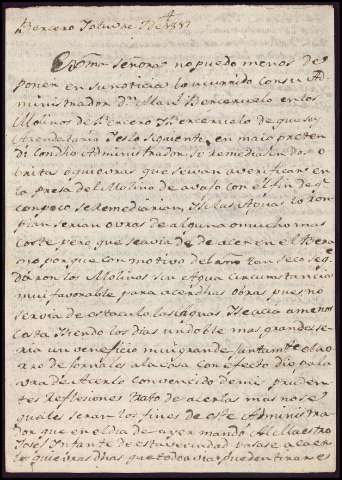 Bercero
Exma Señora no puedo menos de
poner en su noticia lo ocurrido con su Ad
ministrador Dn Man Berceruelo en los
Molinos de Bercero Y Berceruelo de que soy
Arrendatario es lo siguiente, en maio preten
di con dho Administrador se remediasen dos o
britas que otras que se van a verificar en
la presa del Molino de avajo con el fin de q
con poco se remediarian, si las Aguas lo ron
pian serian ovras de alguna mucho mas
coste pero que se avia de acer en el Bera
no porque con motivo del año tan seco se q
daron los Molinos sin Agua circunstancia
mui favorable para acer dhas obras pues no
servia de ostaculo las aguas y se acia a menos
costa y siendo los dias un doble mas grandes se
ria un veneficio mui grande juntamte
de jornales a la casa con efecto dio pala
vra de acerlo convencido de mis pruden
tes Reflesiones trato de acerlas mas no se
quales seran los fines de este Administra
dor que en el dia de ayer mandó Al Maestro
Josef Infante de esta vecindad pasase a acer
los que iras dhas que todo avia pueden tirar es